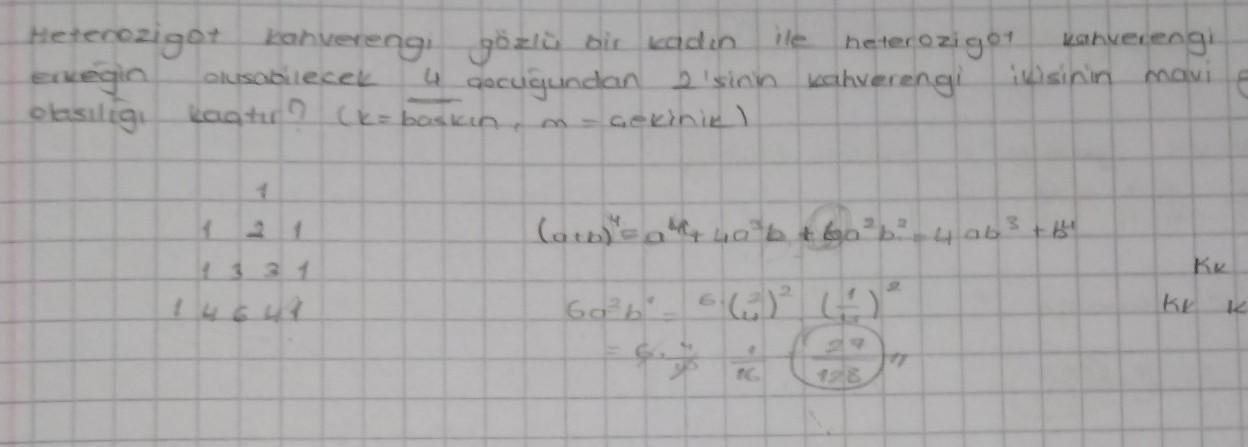 Heterozigot kahverengi gözlü bir kadın ile heterozigot kahverengi
erkeğin oluşabilecek 4 çocuğundan 2'sinin kahverengi ikisinin mavi
olasılığı kaçtır? (K=baskın, m=çekinik)
1
1 2 1
1 3 3 1
1 4 6 4 1
(a+b)⁴=a⁴+4a³b+6a²b²-4ab³+b⁴
Kk
Kk K
6a²b² = 6.( )² ( )²
= 6. 1/16 27/128 //